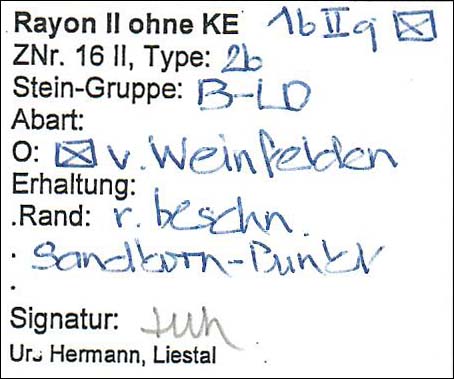 Rayon II ohne KE 1b II q
ZNr. 16 II, Type: 2b
Stein-Gruppe: B-LD
Abart:
O: v. Weinfelden
Erhaltung:
.Rand: r. beschn.
. Sandkorn-Punkt
.
Signatur:
Urs Hermann, Liestal